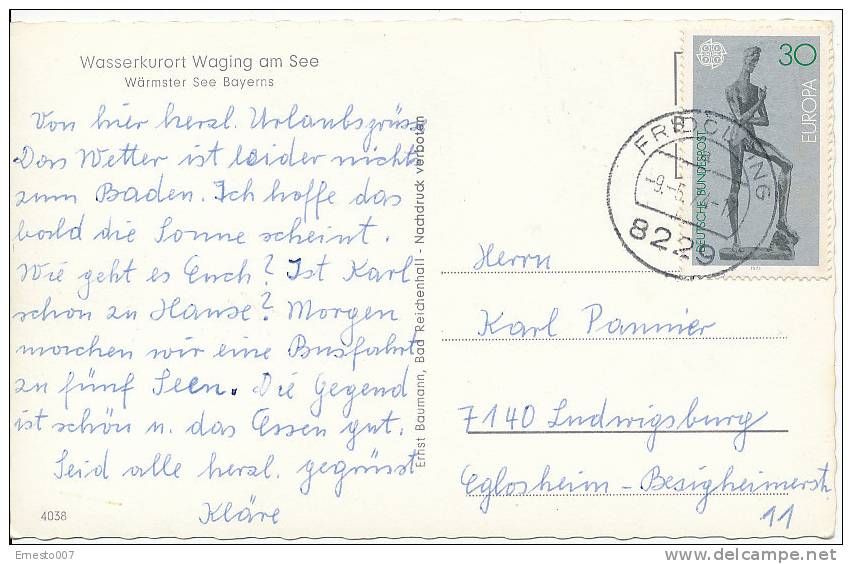 Wasserkurort Waging am See
Wärmster See Bayerns
Von hier herzl. Urlaubsgrüsse
Das Wetter ist leider nicht
zum Baden. Ich hoffe das
bald die Sonne scheint.
Wie geht es Euch? Ist Karl
schon zu Hause? Morgen
machen wir eine Busfahrt
zu fünf Seen. Die Gegend
ist schön u. das Essen gut.
Seid alle herzl. gegrüsst
Kläre
4038
Ernst Baumann, Bad Reichenhall - Nachdruck verboten
30
EUROPA
DEUTSCHE BUNDESPOST
8229
Herrn
Karl Pannier
7140 Ludwigsburg
Eglosheim - Besigheimerstr.
11
Ernesto007
http://www.delcampe.net